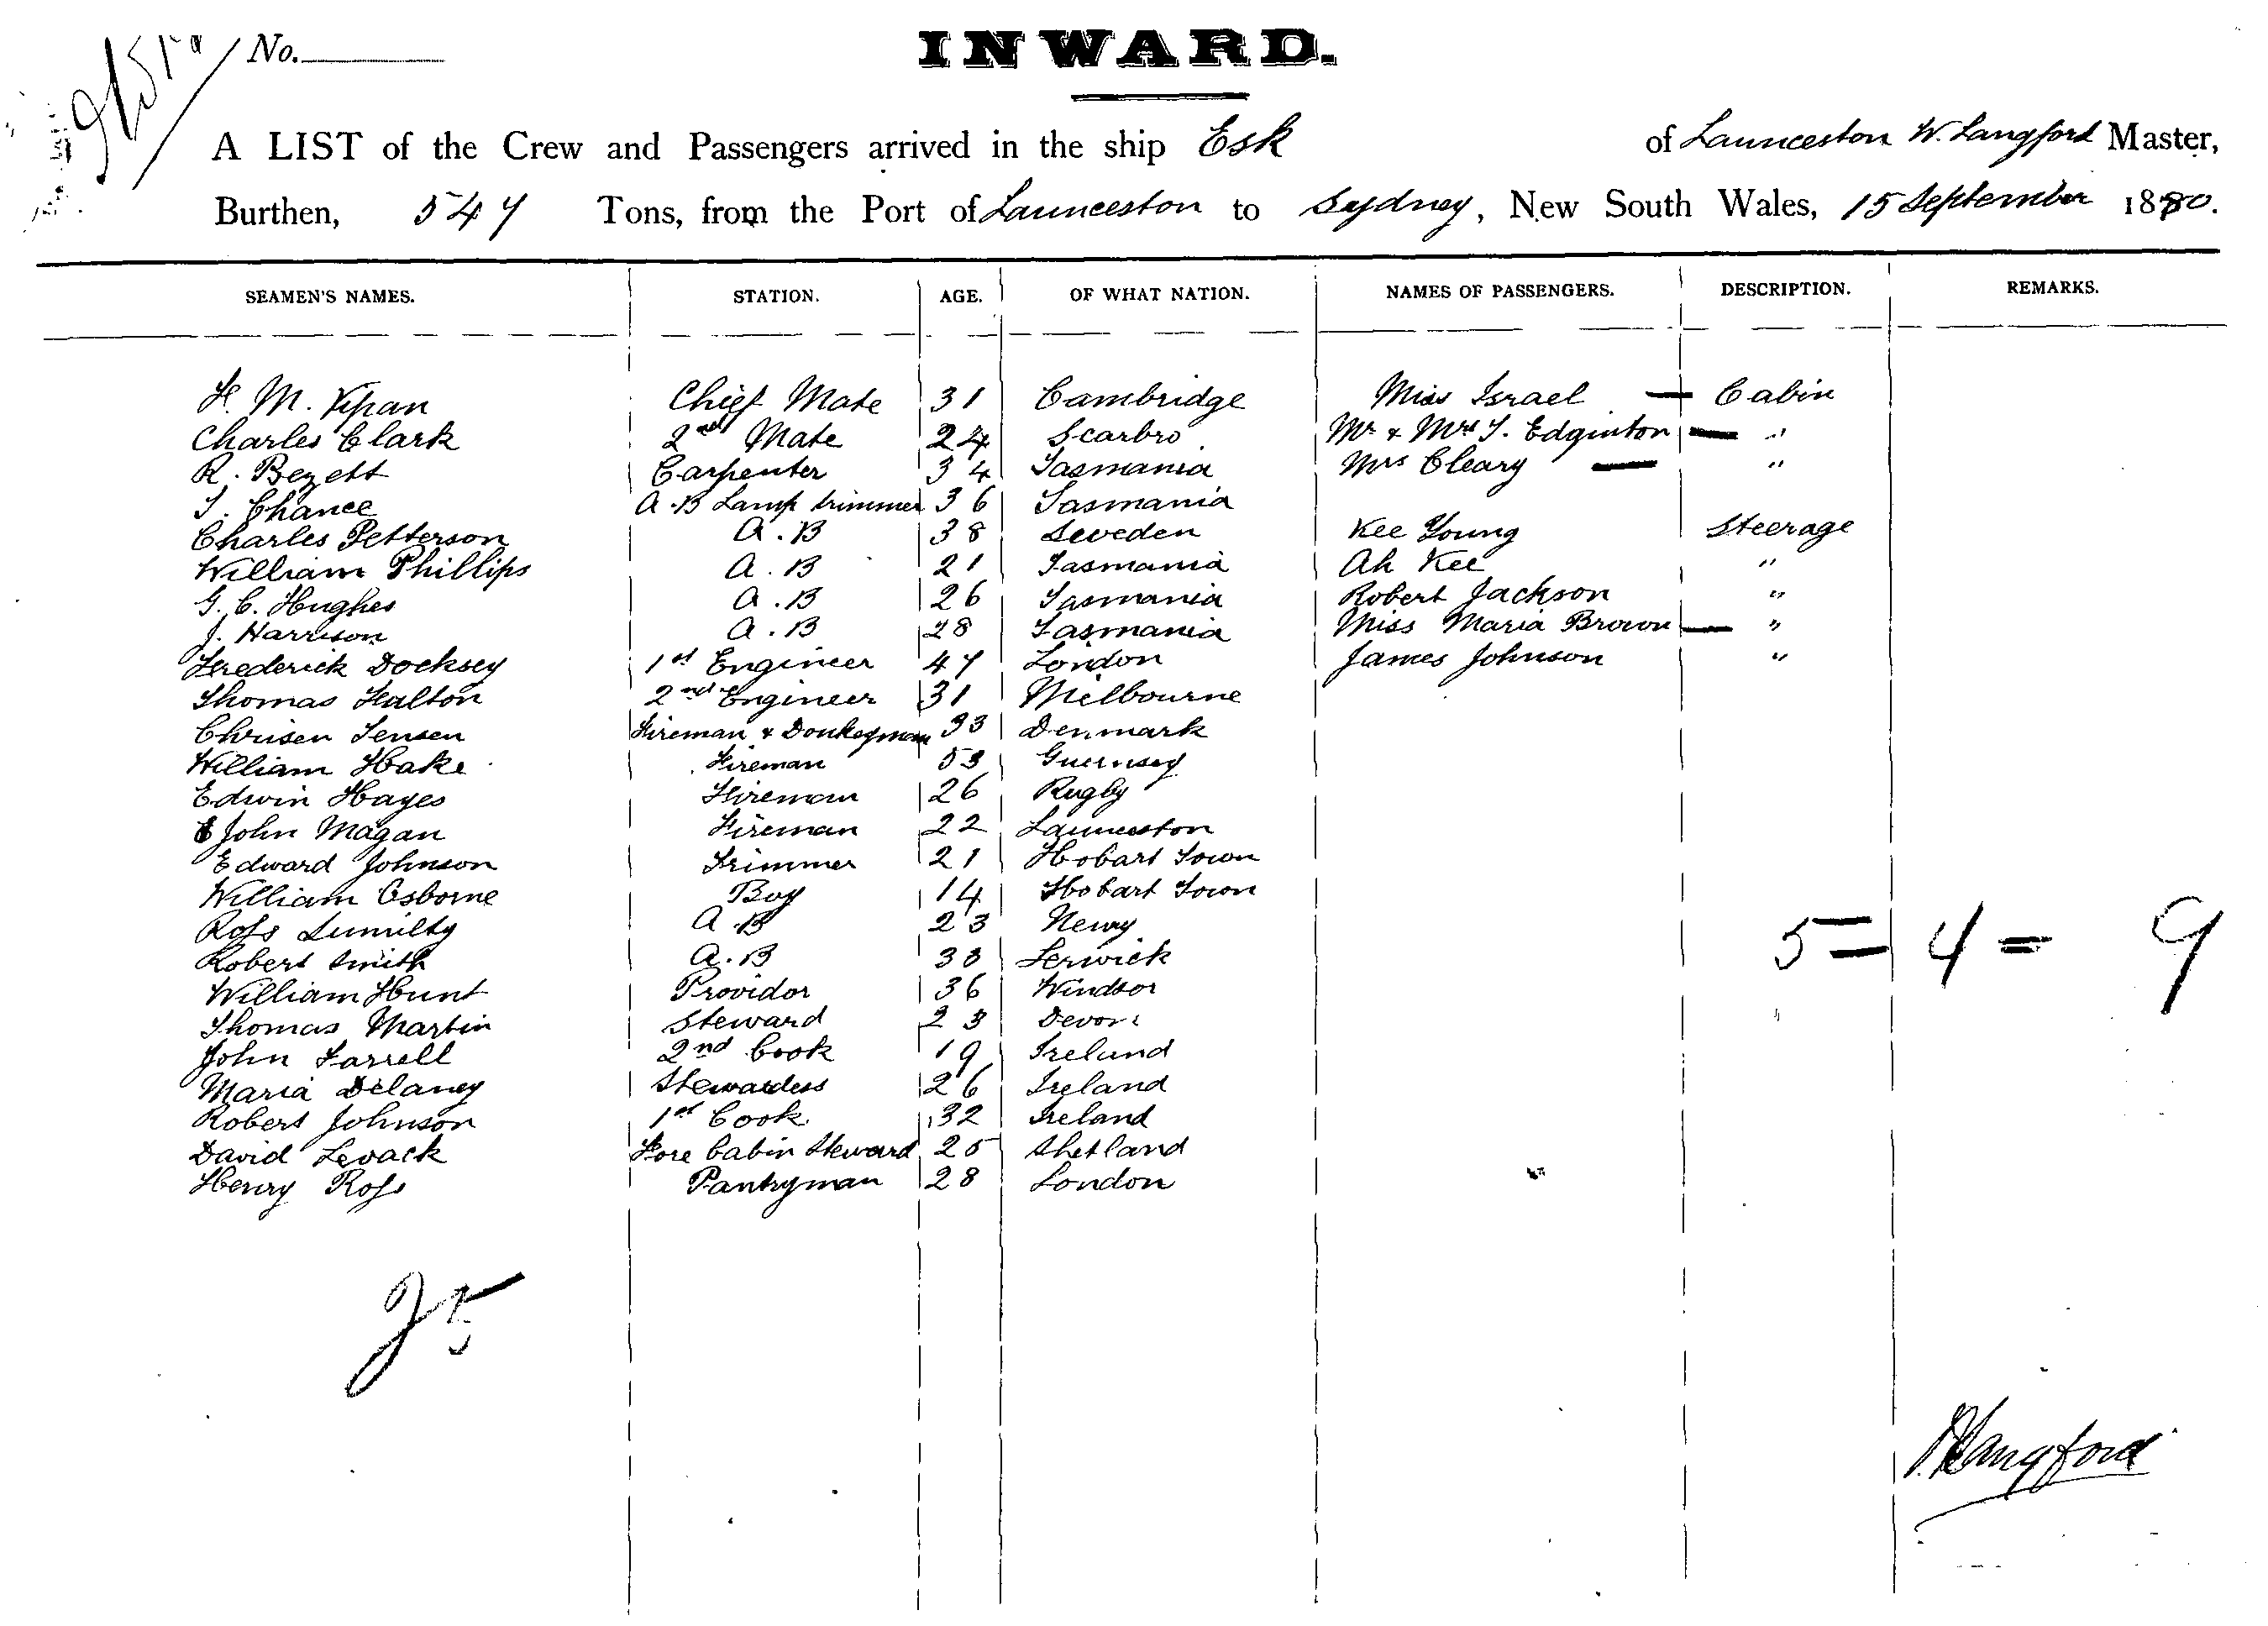 No.
INWARD.
A LIST of the Crew and Passengers arrived in the ship Esk of Launceston W. Langford Master,
Burthen, 547 Tons, from the Port of Launceston to Sydney, New South Wales, 15 September 1880.
SEAMEN'S NAMES. STATION. AGE. OF WHAT NATION. NAMES OF PASSENGERS. DESCRIPTION. REMARKS.
H. M. Chief Mate 31 Cambridge Miss Israel — Cabin
Charles Clark 2nd Mate 24 Scarbro Mr & Mrs T. Edginton — "
R. Bezett Carpenter 34 Tasmania Mrs Cleary — "
T. Chance A.B Lamp trimmer 36 Tasmania
Charles Petterson A.B 38 Sweden Kee Young Steerage
William Phillips A.B 21 Tasmania Ah Kee "
G. C. Hughes A.B 26 Tasmania Robert Jackson "
J. Harrison A.B 28 Tasmania Miss Maria Brown — "
Frederick Docksey 1st Engineer 47 London James Johnson "
Thomas Halton 2nd Engineer 31 Melbourne
Chrisen Jensen Fireman & Donkeyman 33 Denmark
William Hake Fireman 53 Guernsey
Edwin Hayes Fireman 26 Rugby
John Magan Fireman 22 Launceston
Edward Johnson Trimmer 21 Hobart Town
William Osborne Boy 14 Hobart Town
Ross A.B 23 Newry
Robert Smith A.B 33 Lerwick
William Hunt Providor 36 Windsor
Thomas Martin Steward 23 Devon
John Farrell 2nd Cook 19 Ireland
Maria Delaney Stewardess 26 Ireland
Robert Johnson 1st Cook 32 Ireland
David Levack Fore Cabin Steward 25 Shetland
Henry Ross Pantryman 28 London
5 = 4 = 9
25
Langford